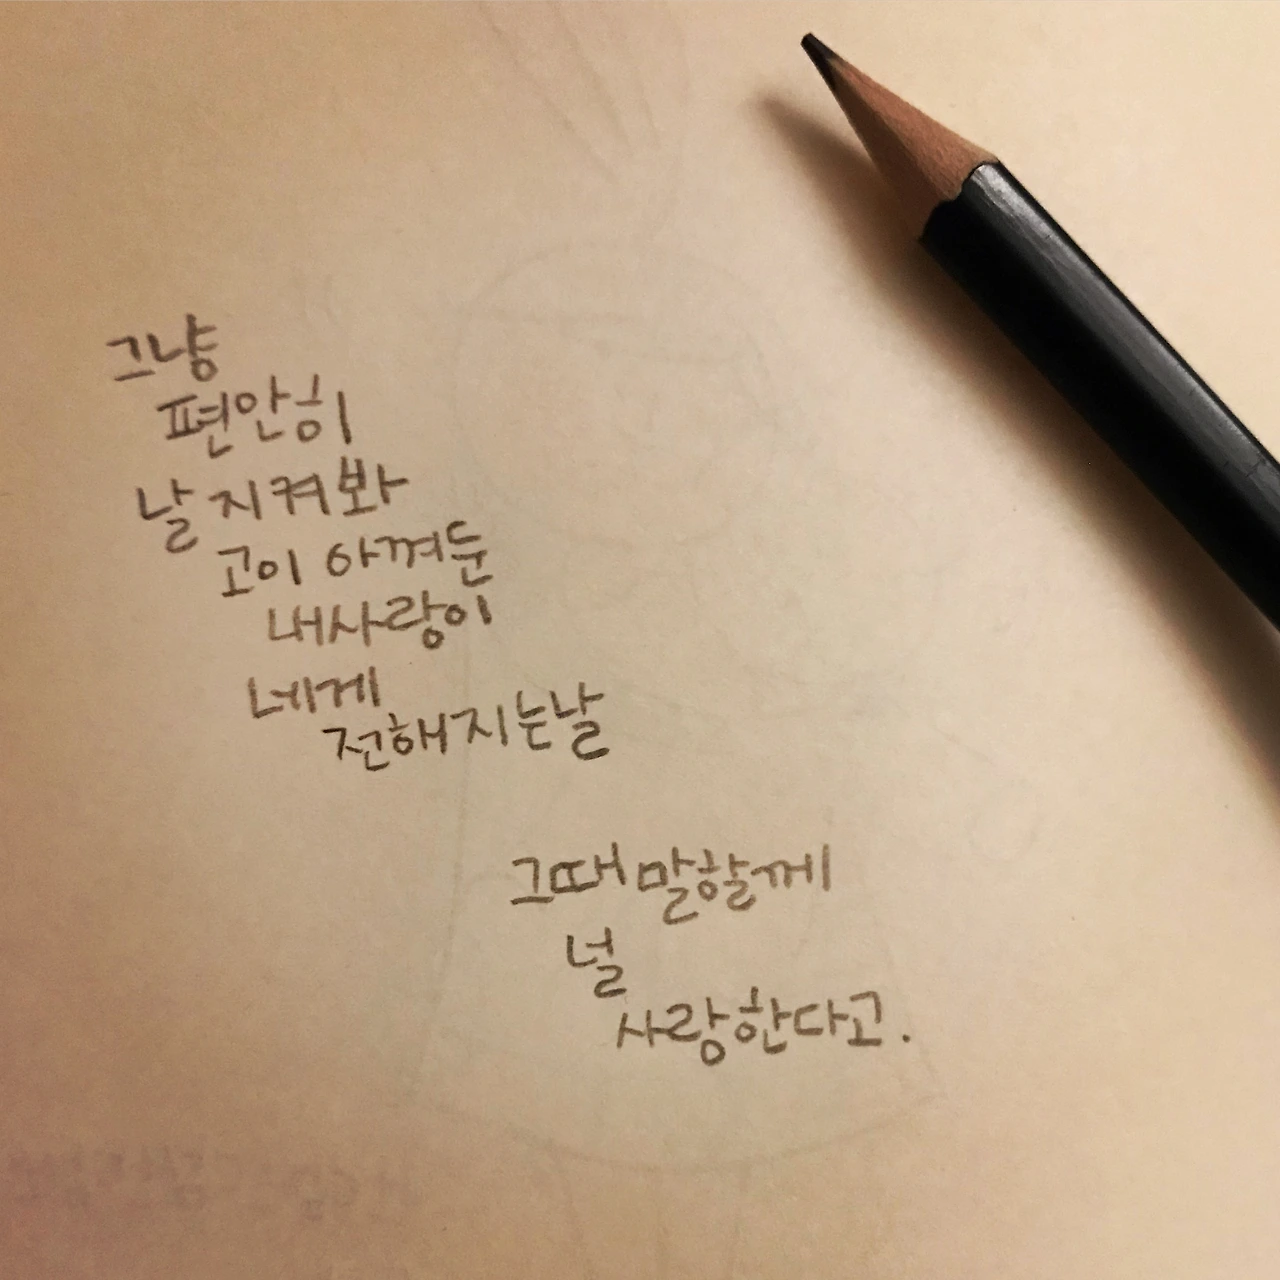 그냥
편안히
날 지켜봐
고이 아껴둔
내사랑이
네게
전해지는날
그때 말할께
널
사랑한다고.